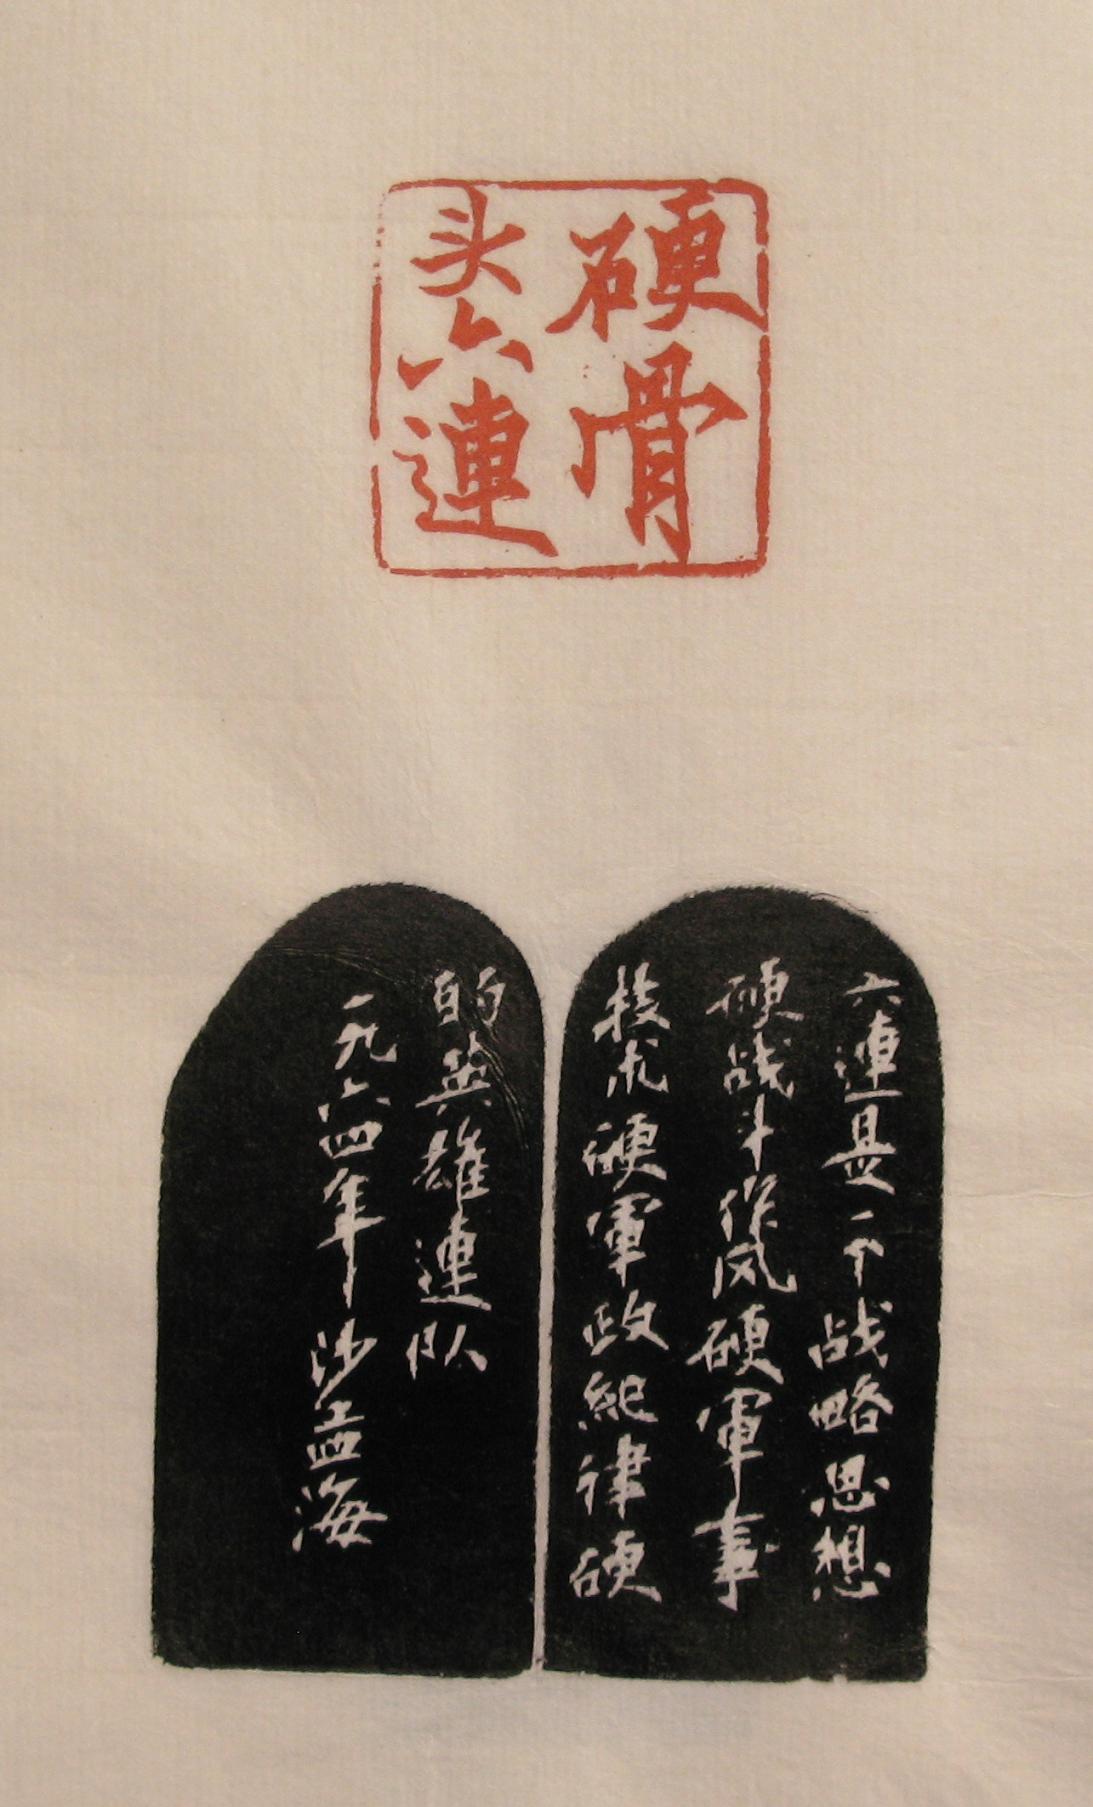 硬骨
头六連
六連是一个战略思想
硬战斗作风硬軍事
技术硬軍政紀律硬
的英雄連队
一九六四年沙孟海